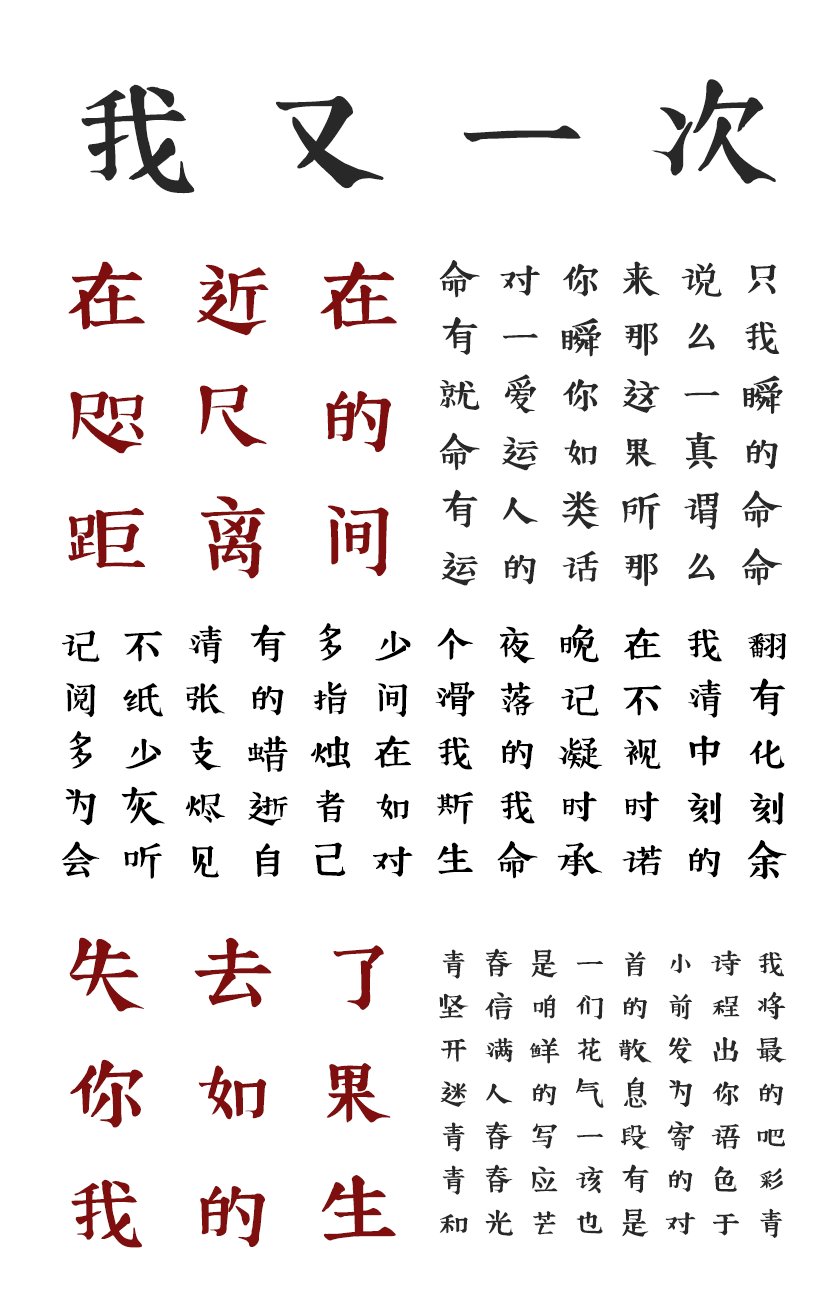 我又一次
在近在
咫尺的
距离间
命对你来说只
有一瞬那么我
就爱你这一瞬
命运如果真的
有人类所谓命
运的话那么命
记不清有多少个夜晚在我翻
阅纸张的指间滑落记不清有
多少支蜡烛在我的凝视中化
为灰烬逝者如斯我时时刻刻
会听见自己对生命承诺的余
失去了
你如果
我的生
青春是一首小诗我
坚信咱们的前程将
开满鲜花散发出最
迷人的气息为你的
青春写一段寄语吧
青春应该有的色彩
和光芒也是对于青